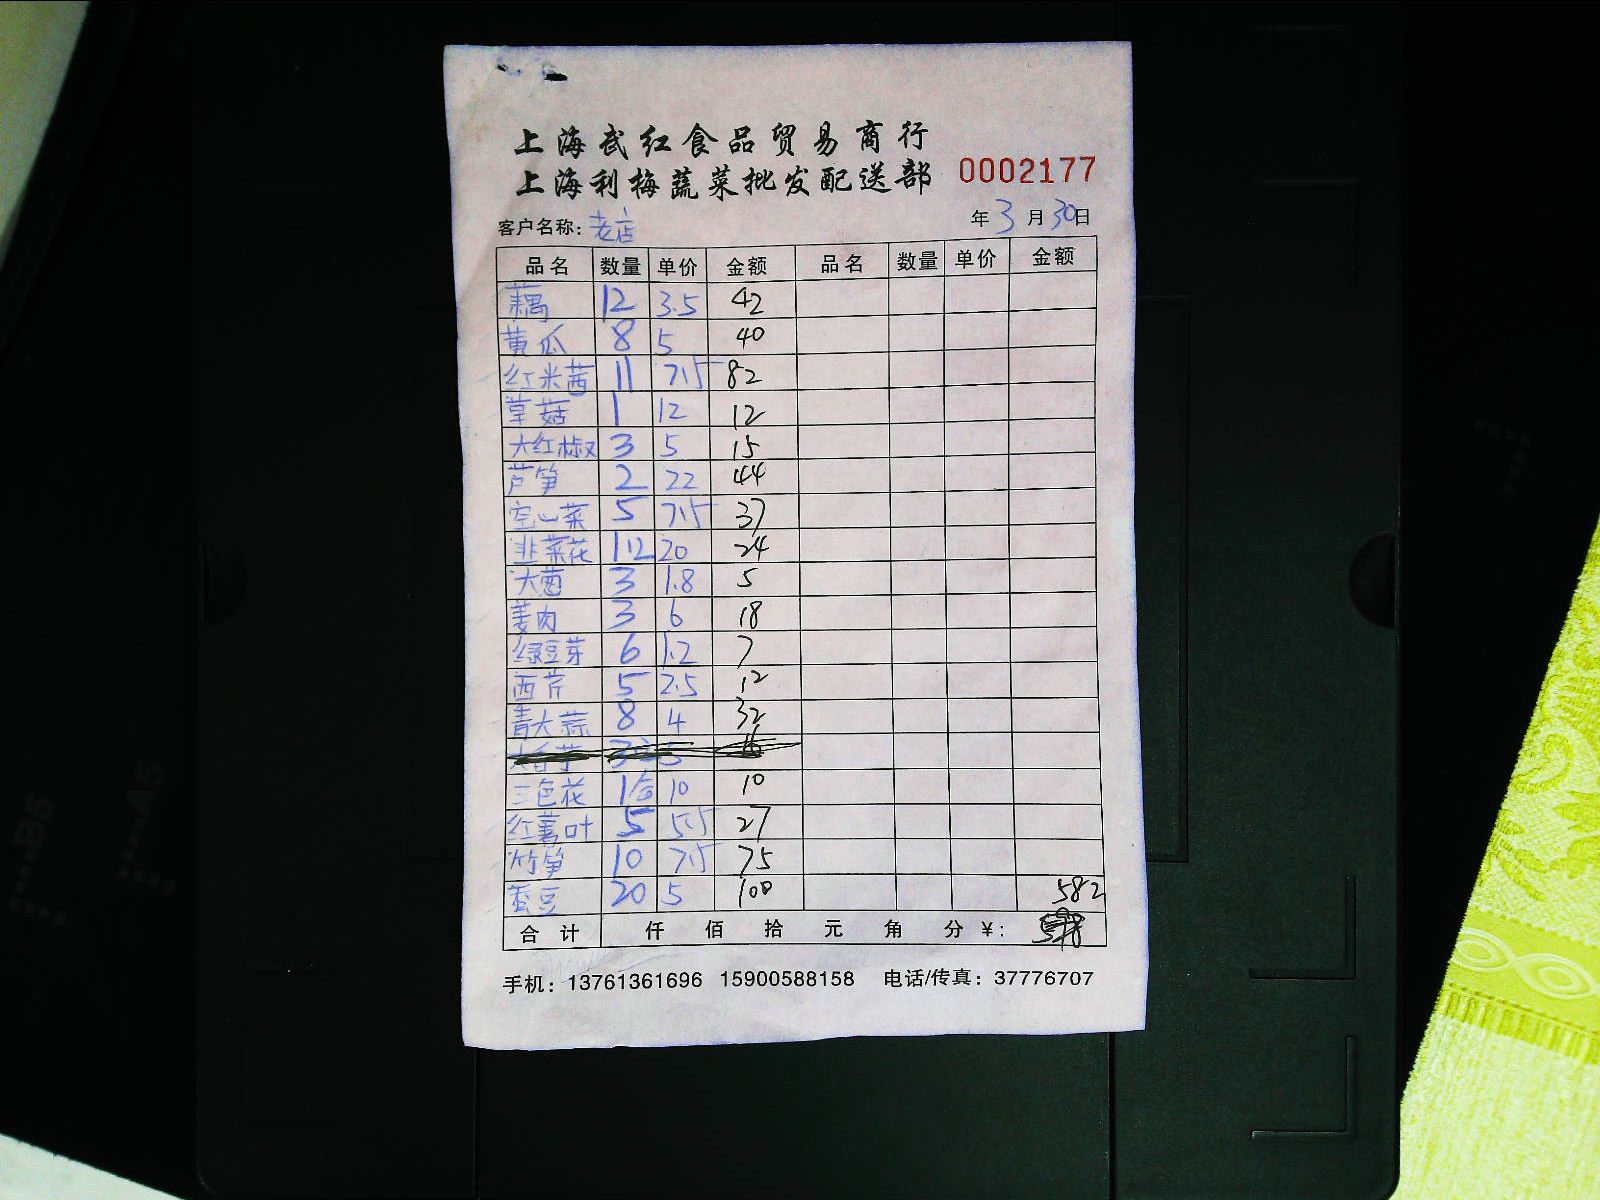 上海武红食品贸易商行
上海利梅蔬菜批发配送部 0002177
客户名称: 老店 年 3 月 30 日
品名 数量 单价 金额 品名 数量 单价 金额
藕 12 3.5 42
黄瓜 8 5 40
红米苋 11 7.5 82
草菇 1 12 12
大红椒 3 5 15
芦笋 2 22 44
空心菜 5 7.5 37
韭菜花 1.2 20 24
大葱 3 1.8 5
姜肉 3 6 18
绿豆芽 6 1.2 7
西芹 5 2.5 12
青大蒜 8 4 32
三色花 1合 10 10
红薯叶 5 5.5 27
竹笋 10 7.5 75
蚕豆 20 5 100 582
合计 仟 佰 拾 元 角 分 ¥:
手机: 13761361696 15900588158 电话/传真: 37776707